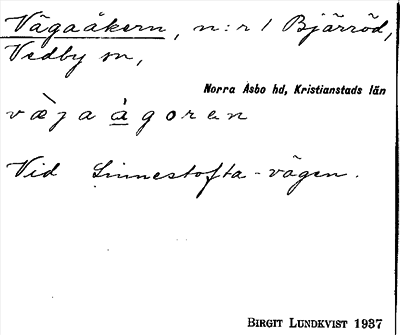 Vägaåkern, n:r 1 Bjärröd,
Vedby sn,
Norra Åsbo hd, Kristianstads län
væ̀ga ågoren
Vid Linnestofta-vägen.
BIRGIT LUNDKVIST 1937